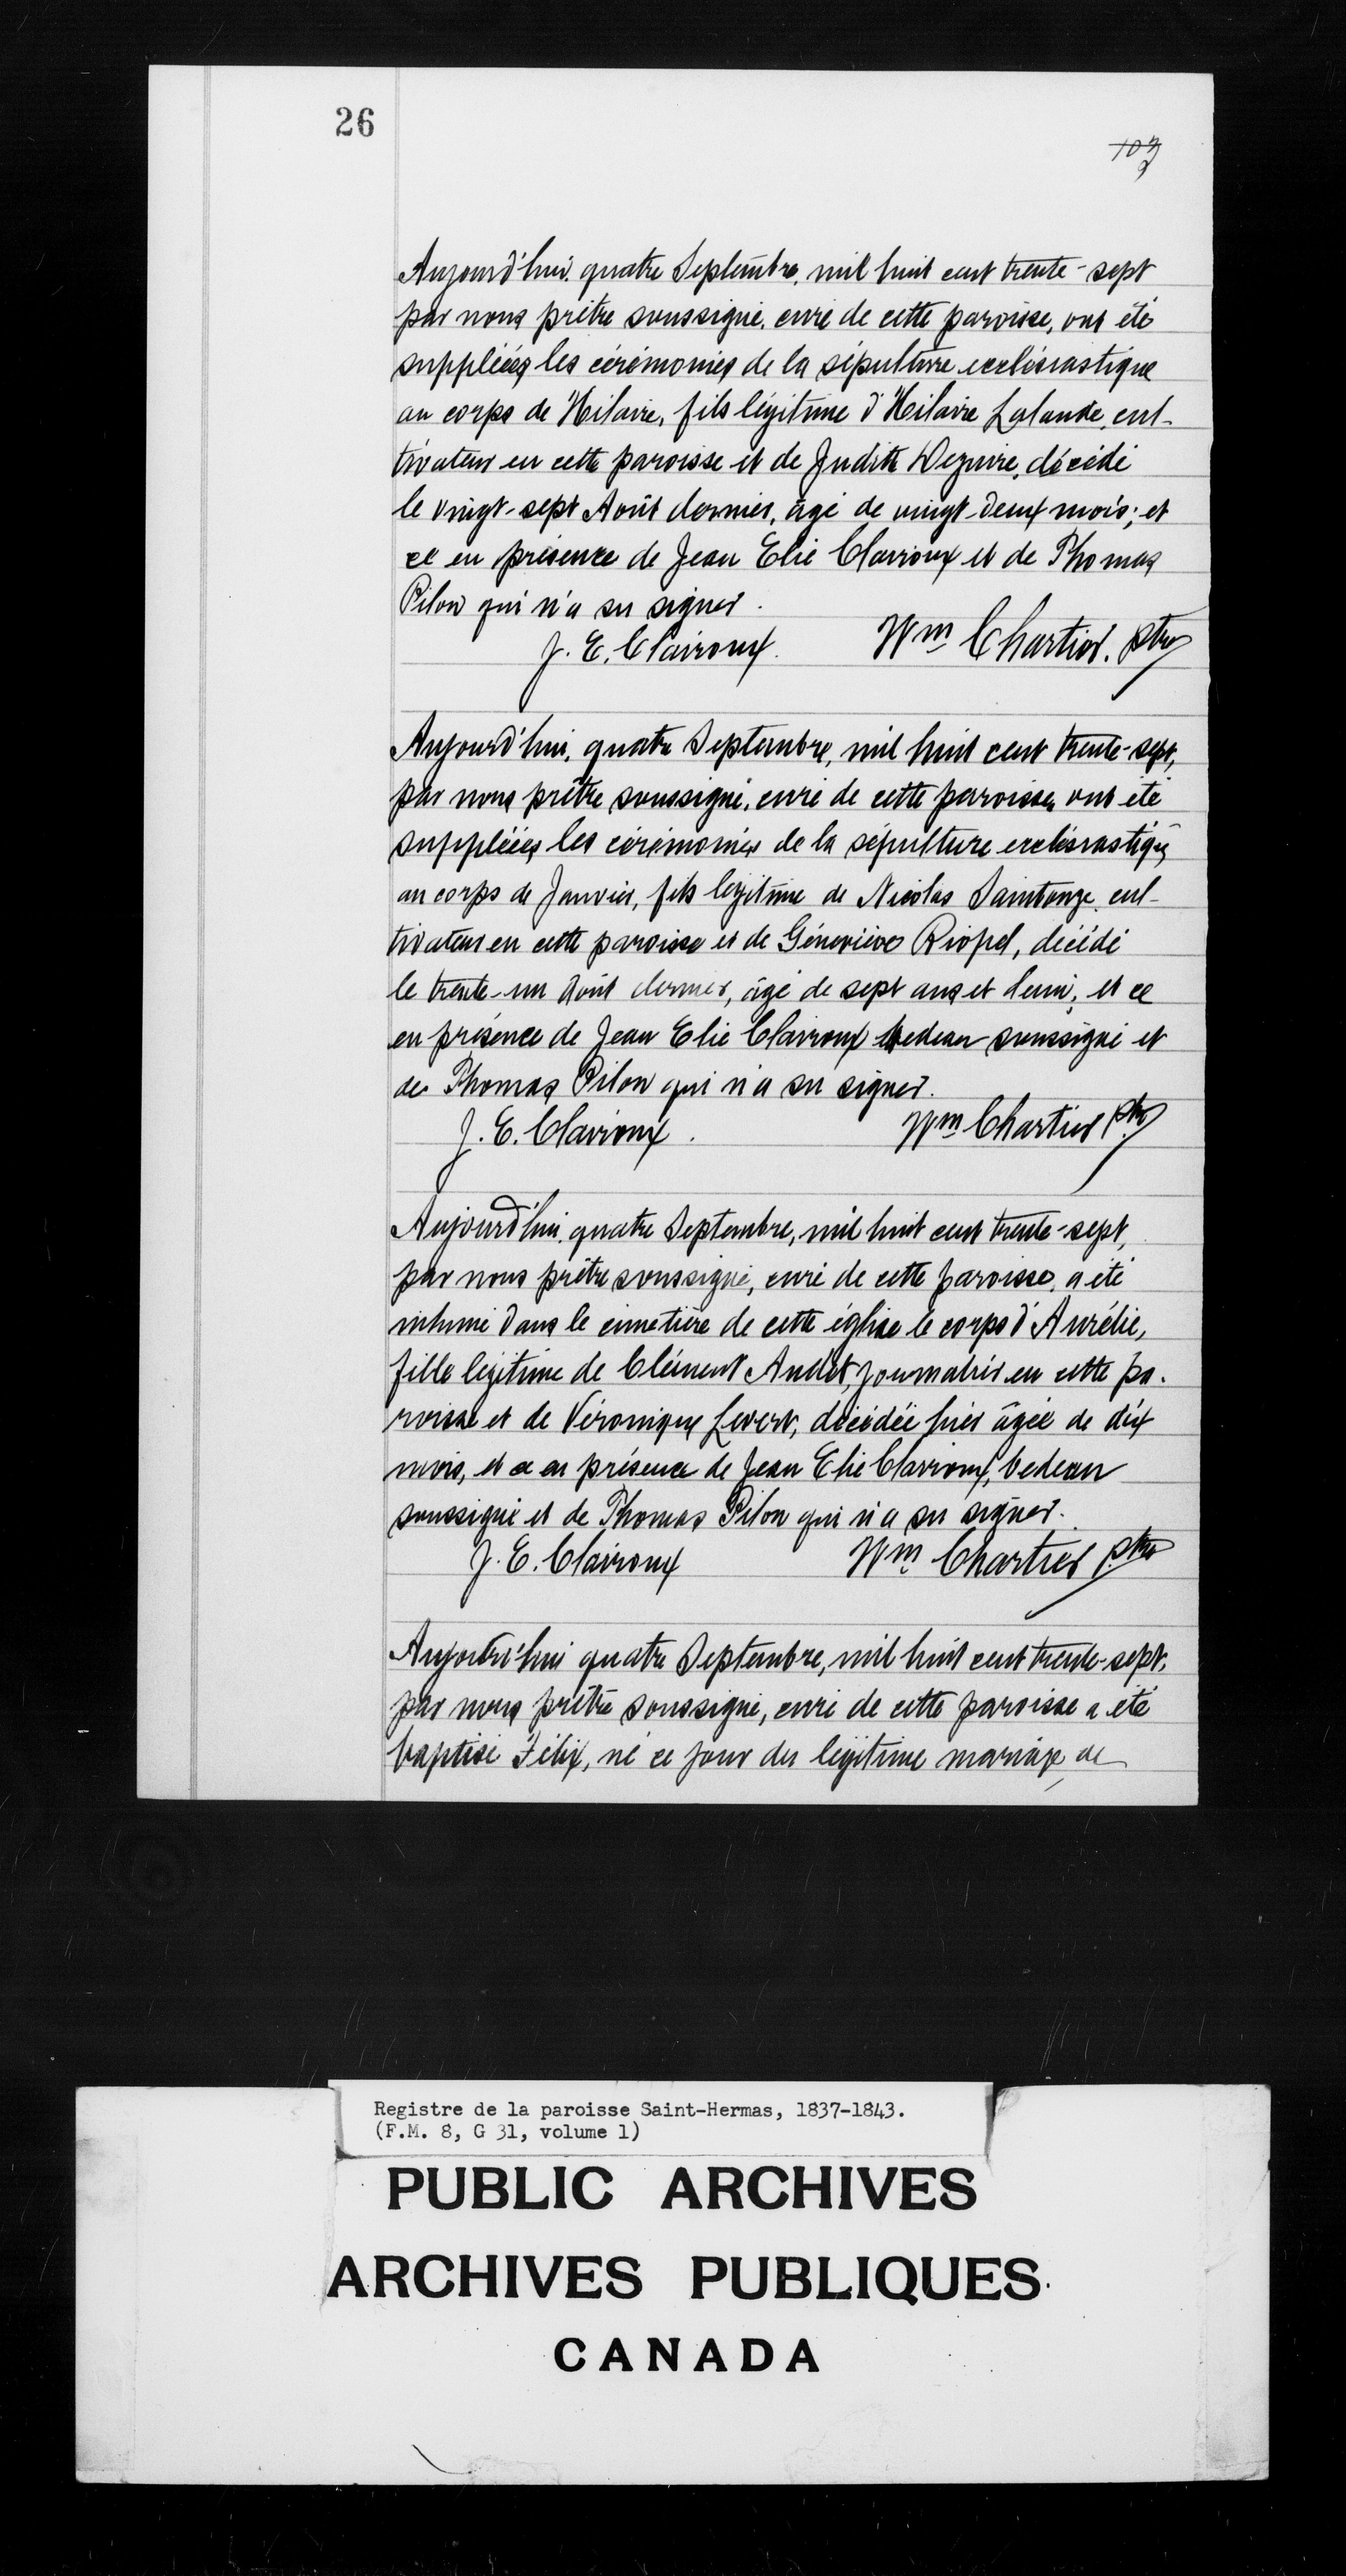 26
103
Aujourd'hui, quatre Septembre, mil huit cent trente-sept
par nous prêtre soussigné, curé de cette paroisse, ont été
suppléées les cérémonies de la sépulture ecclésiastique
au corps de Hilaire, fils légitime d'Hilaire Lalande, cul-
tivateur en cette paroisse et de Judith Deguire, décédé
le vingt-sept Août dernier, âgé de vingt-deux mois; et
ce en présence de Jean Elie Clairoux et de Thomas
Pilon qui n'a su signer.
J. E. Clairoux. Wm Chartier. ptre
Aujourd'hui, quatre Septembre, mil huit cent trente-sept,
par nous prêtre soussigné, curé de cette paroisse, ont été
suppléées les cérémonies de la sépulture ecclésiastiq
au corps de Janvier, fils légitime de Nicolas Saintonge, cul-
tivateur en cette paroisse et de Géneviève Riopel, décédé
le trente-un Août dernier, âgé de sept ans et demi; et ce
en présence de Jean Elie Clairoux bedeau soussigné et
de Thomas Pilon qui n'a su signer.
J. E. Clairoux. Wm Chartier ptre
Aujourd'hui, quatre Septembre, mil huit cent trente-sept,
par nous prêtre soussigné, curé de cette paroisse, a été
inhumé dans le cimetière de cette église le corps d'Aurélie,
fille légitime de Clément Audet, journalier en cette pa-
roisse et de Véronique Levert, décédée hier âgée de dix
mois, et ce en présence de Jean Elie Clairoux, bedeau
soussigné et de Thomas Pilon qui n'a su signer.
J. E. Clairoux Wm Chartier ptre
Aujourd'hui quatre Septembre, mil huit cent trente-sept,
par nous prêtre soussigné, curé de cette paroisse a été
baptisé Félix, né ce jour du légitime mariage de
Registre de la paroisse Saint-Hermas, 1837-1843.
(F.M. 8, G 31, volume 1)
PUBLIC ARCHIVES
ARCHIVES PUBLIQUES
CANADA